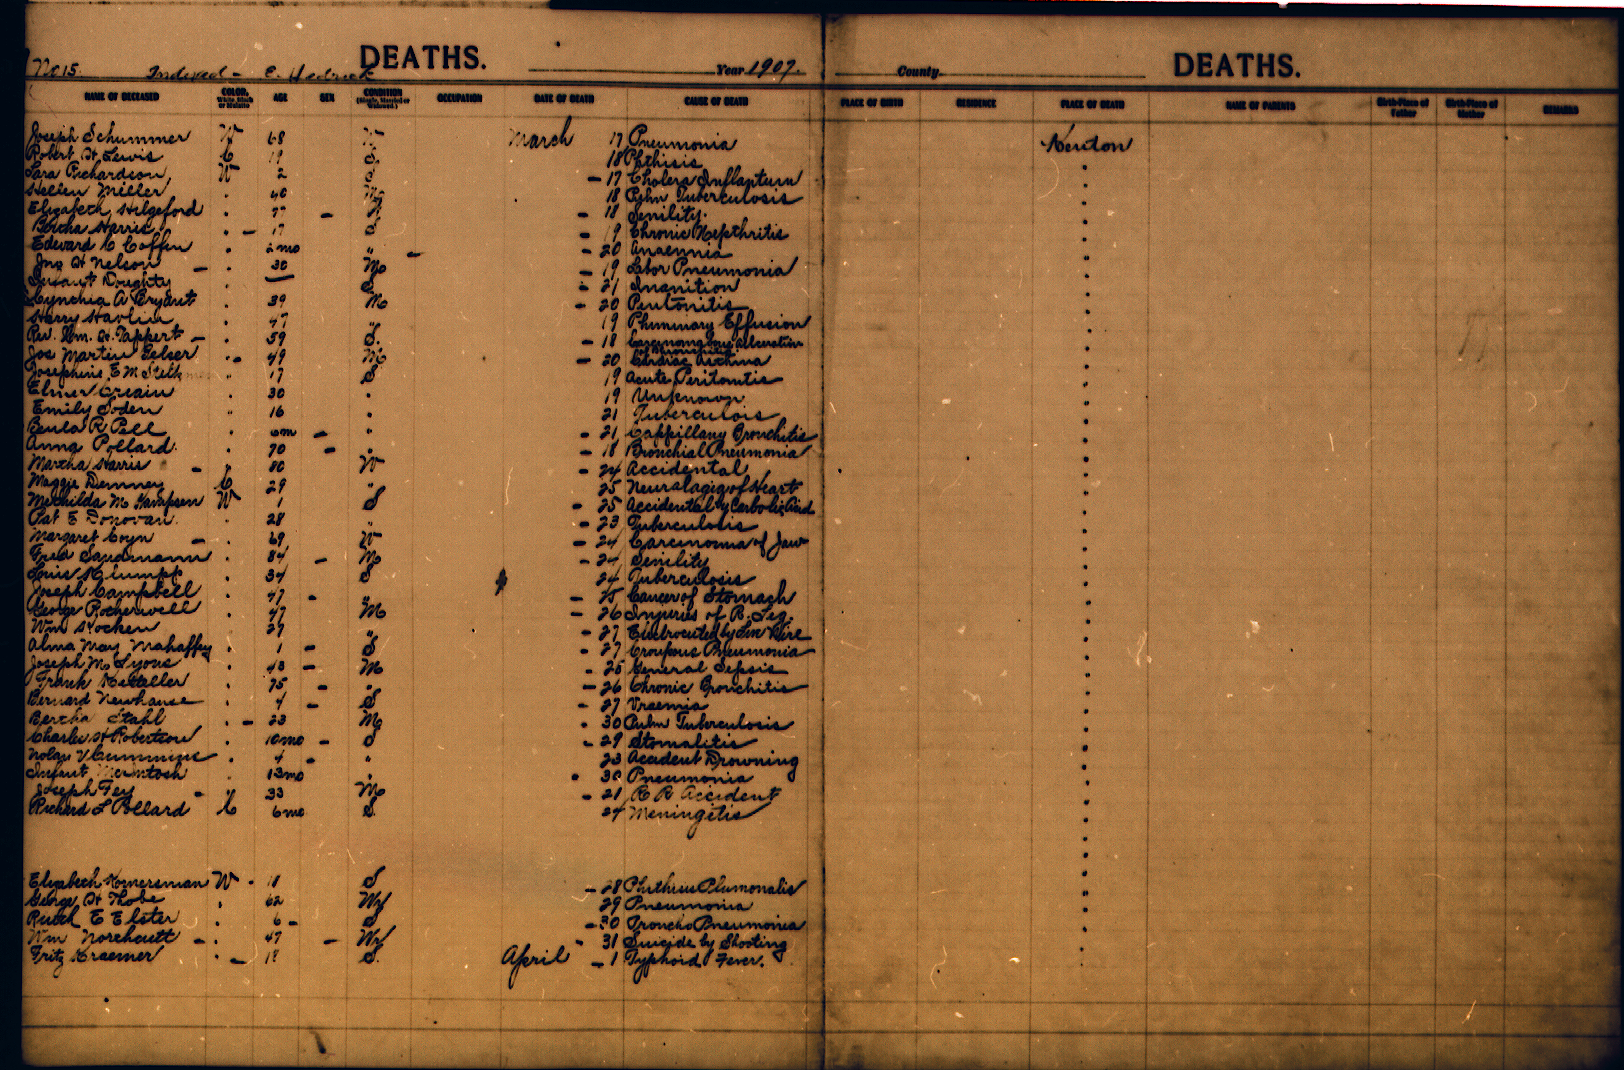 No 15. Indexed - E. Hedrick DEATHS. Year 1907. County DEATHS.
NAME OF DECEASED COLOR, White, Black or Mulatto AGE SEX CONDITION (Single, Married or Widowed) OCCUPATION DATE OF DEATH CAUSE OF DEATH PLACE OF BIRTH RESIDENCE PLACE OF DEATH NAME OF PARENTS Birth-Place of Father Birth-Place of Mother REMARKS
Joseph Schummer W 68 W March 17 Pneumonia Newton
Robert H Lewis C 19 S. 18 Phthisis "
Lara Richardson W 2 S - 17 Cholera Inflantum "
Hellen Miller " 40 M 18 Pulm Tuberculosis "
Elizabeth Hilgeford " 77 - W - 18 Senility. "
Bertha Harris " - 17 S - 19 Chronic Nephritis "
Edward C Coffin " 2 mo " - - 20 Anaemia "
Jno H Nelson - " 30 M - 19 Lobor Pneumonia "
Infant Doughty " — S. - 21 Inanition "
Cynthia A Bryant " 39 M - 20 Peritonitis "
Harry Havlin " 47 " 19 Effusion "
Rev. Wm. H. Tappert - " 59 S. - 18 "
Jos Martin Gelser " - 49 M - 20 Cardiac Asthma "
Josephine E M " 17 S 19 Acute Peritonitis "
Elmer " 30 " 19 Unknown "
Emily Soden " 16 " 21 Tuberculois "
Beula R Pell " 6m - " - 21 Cappillary Bronchitis "
Anna Pollard " 70 - " - 18 Bronchial Pneumonia "
Martha Harris - " 80 W - 24 Accidental "
Maggie C 29 " 25 Neuralagia of Heart "
Methilda M W 1 S - 25 Accidental by Carbolic Acid "
Pat E Donovan. " 28 " - 23 Tuberculosis "
Margaret Coyn - " 69 W - 24 Carcinoma of Jaw "
Fred Sandmann " 84 - M - 24 Senility "
Louis Klumpp " 34 S 24 Tuberculosis "
Joseph Campbell " 47 - " - 25 Cancer of Stomach "
George Rothenvell " 47 M - 26 Injuries of R. Leg. "
Wm Hocken " 27 " - 27 Electrocuted by Live Wire "
Alma May Mahaffey " 1 - S - 27 Croupous Pneumonia "
Joseph M. Lyons " 43 - M - 25 General Sepsis "
Frank Ketteller " 75 - " - 26 Chronic Bronchitis "
Bernard Newhause " 4 - S - 27 Uraemia "
Bertha Stahl " - 23 M - 30 Pulm Tuberculosis "
Charles H Robertson " 10 mo - S - 29 Stomalitis "
Nolan V Cummins " 4 - " 23 Accident Drowning "
Infant McIntosh " 13 mo " - 30 Pneumonia "
Joseph Fey - " 33 M - 21 R R Accident "
Richard L Pollard C 6 mo S. 27 Meningitis "
Elizabeth Komersman W - 18 S - 28 Phthisus Plumonalis "
George H Thobe " 62 Wd 29 Pneumonia "
Ruth E Elster " 6 - S - 30 Broncho Pneumonia "
Wm Northcutt - " 47 - Wd - 31 Suicide by Shooting "
Fritz Kraemer " - 18 S. April - 1 Typhoid Fever. "